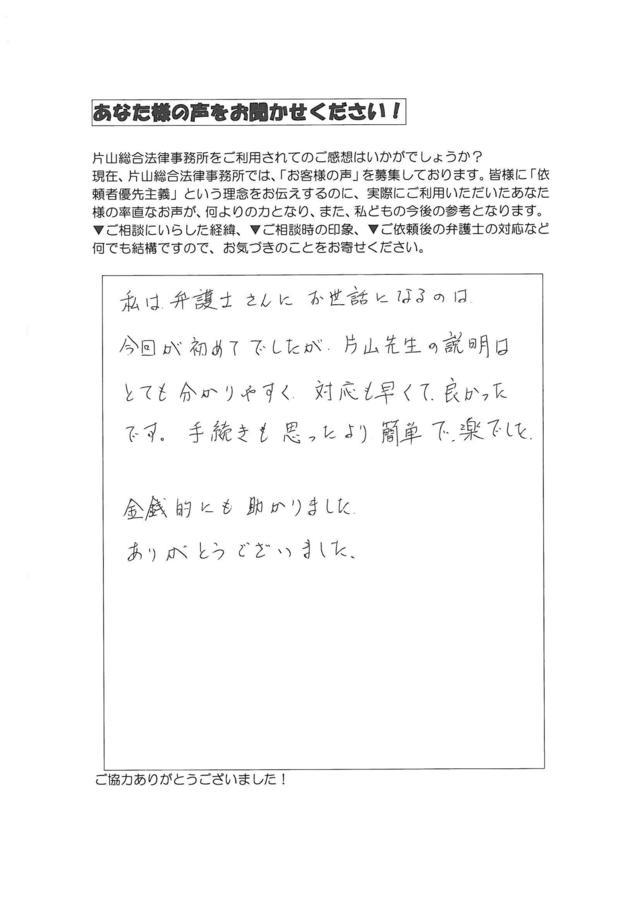 あなた様の声をお聞かせください！
片山総合法律事務所をご利用されてのご感想はいかがでしょうか？
現在、片山総合法律事務所では、「お客様の声」を募集しております。皆様に「依
頼者優先主義」という理念をお伝えするのに、実際にご利用いただいたあなた
様の率直なお声が、何よりの力となり、また、私どもの今後の参考となります。
▼ご相談にいらした経緯、▼ご相談時の印象、▼ご依頼後の弁護士の対応など
何でも結構ですので、お気づきのことをお寄せください。
私は、弁護士さんに お世話になるのは、
今回が初めてでしたが、片山先生の説明は
とても分かりやすく、対応も早くて、良かった
です。手続きも思ったより簡単で、楽でした。
金銭的にも助かりました。
ありがとうございました。
ご協力ありがとうございました！